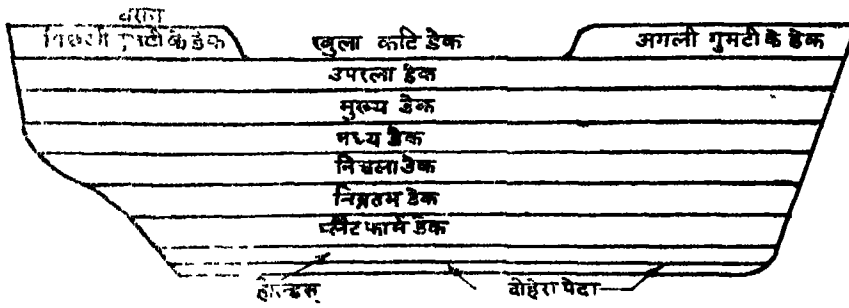 पिछली गुमटी के डेक
खुला कटि डेक
अगली गुमटी के डेक
उपरला डेक
मुख्य डेक
मध्य डेक
निचला डेक
निम्नतम डेक
प्लैटफार्म डेक
होल्डस्
दोहरा पेंदा